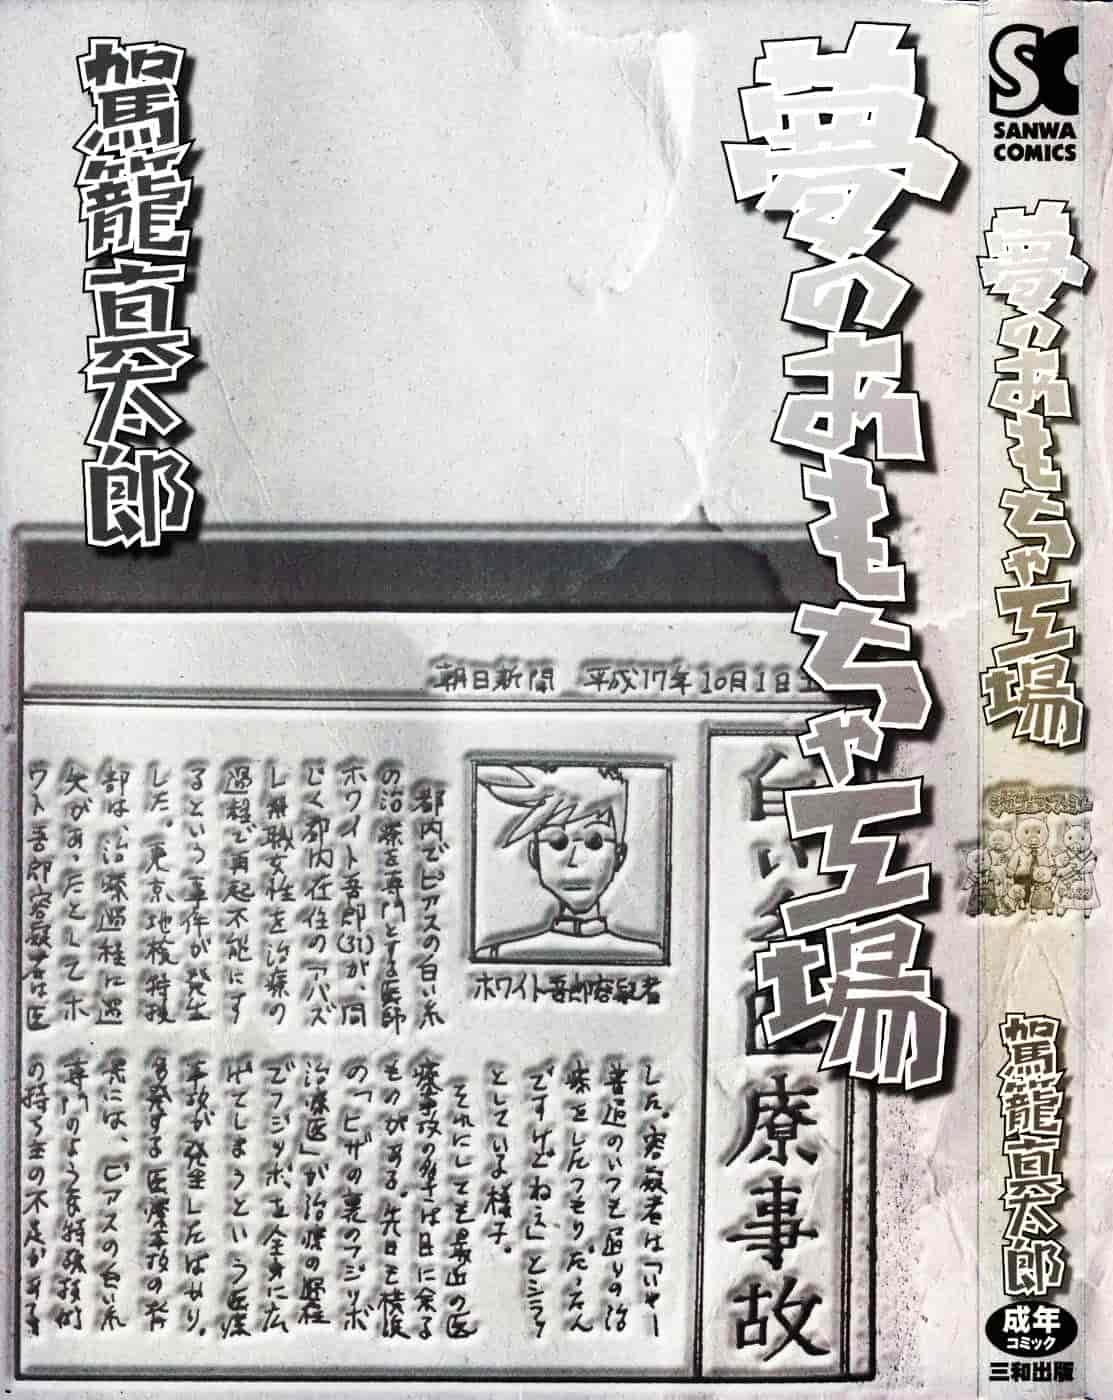 夢のおもちゃ工場
駕籠真太郎
朝日新聞 平成17年10月1日土
白い糸医療事故
ホワイト吾郎容疑者
都内でピアスの白い糸
の治療を専門とする医師
ホワイト吾郎(31)が、同
じく都内在住のアバズ
レ無職女性を治療の
過程で再起不能にす
るという事件が発生
した。東京地検特捜
部は、治療過程に過
失があったとしてホ
ワイト吾郎容疑者は医
した。容疑者は「いやー
普通のいつも通りの治
療をしたつもりだったん
ですけどねえ」とシラ
としている様子。
それにしても最近の医
療事故の多さは目に余る
ものがある。先日も横浜
の「ヒザの裏のフジツボ
治療医」が治療の過程
でフジツボを全身に広
げてしまうという医療
事故が発生したばかり。
多発する医療事故の背
景には、ピアスの白い糸
専門のような特殊技術
の持ち主の不足がある
SC
SANWA
COMICS
夢のおもちゃ工場
駕籠真太郎
成年
コミック
三和出版